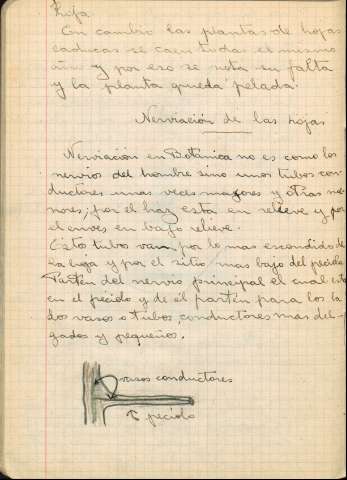 hifa.
En cambio las plantas de hojas
caducas se caen todas el mismo
año y por eso se nota su falta
y la planta queda pelada.
Nerviación de las hojas
Nerviación en Botánica no es como los
nervios del hombre sino unos tubos con-
ductores unas veces mayores y otras me-
nores; por el haz esta en relieve y por
el enves en bajo relieve.
Estos tubos van por lo mas escondido de
la hoja y por el sitio mas bajo del peciolo
Partén del nervio principal el cual esta
en el peciolo y de él partén para los la-
dos vasos o tubos conductores mas del-
gados y pequeños.
vasos conductores
peciolo